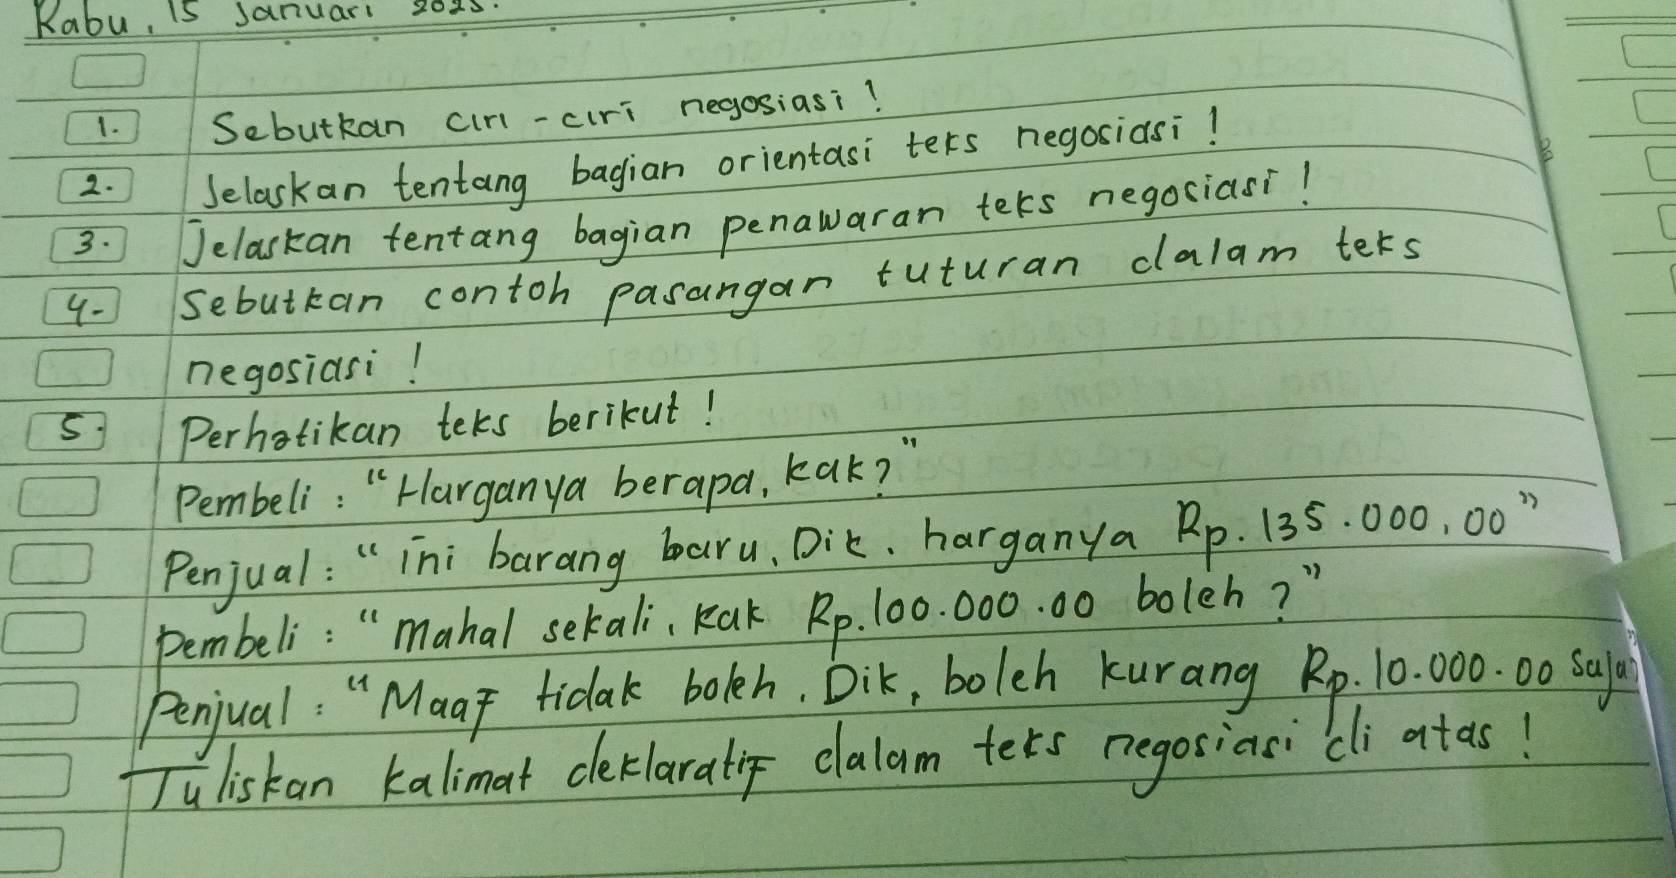 Rabu, 15 Januari 2025.
1. Sebutkan ciri-ciri negosiasi!
2. Jelaskan tentang bagian orientasi teks negosiasi!
3. Jelaskan tentang bagian penawaran teks negosiasi!
4. Sebutkan contoh pasangan tuturan dalam teks
negosiasi!
5. Perhatikan teks berikut!
Pembeli: "Harganya berapa, kak?"
Penjual: "ini barang baru, Dik, harganya Rp. 135.000,00"
Pembeli: "Mahal sekali, kak Rp. 100.000.00 boleh?"
Penjual: "Maaf tidak boleh, Dik, boleh kurang Rp. 10.000.00 saja"
Tuliskan kalimat deklaratif dalam teks negosiasi di atas!